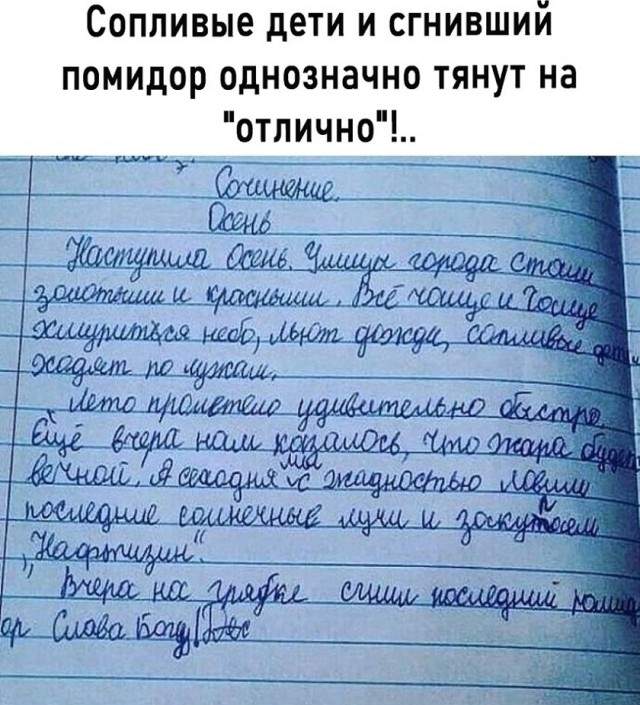 Сопливые дети и сгнивший
помидор однозначно тянут на
"отлично"!..
Сочинение.
Осень
Наступила Осень. Улицы города стали
золотыми и красными. Всё чаще и чаще
хмурится небо, льют дожди, сопливые дети
ходят по лужам.
Лето пролетело удивительно быстро.
Ещё вчера нам казалось, что жара будет
вечной. А сегодня мы с жадностью ловим
последние солнечные лучи и
„Нафтизин".
Вчера на грядке сгнил последний помид
ор Слава Богу!